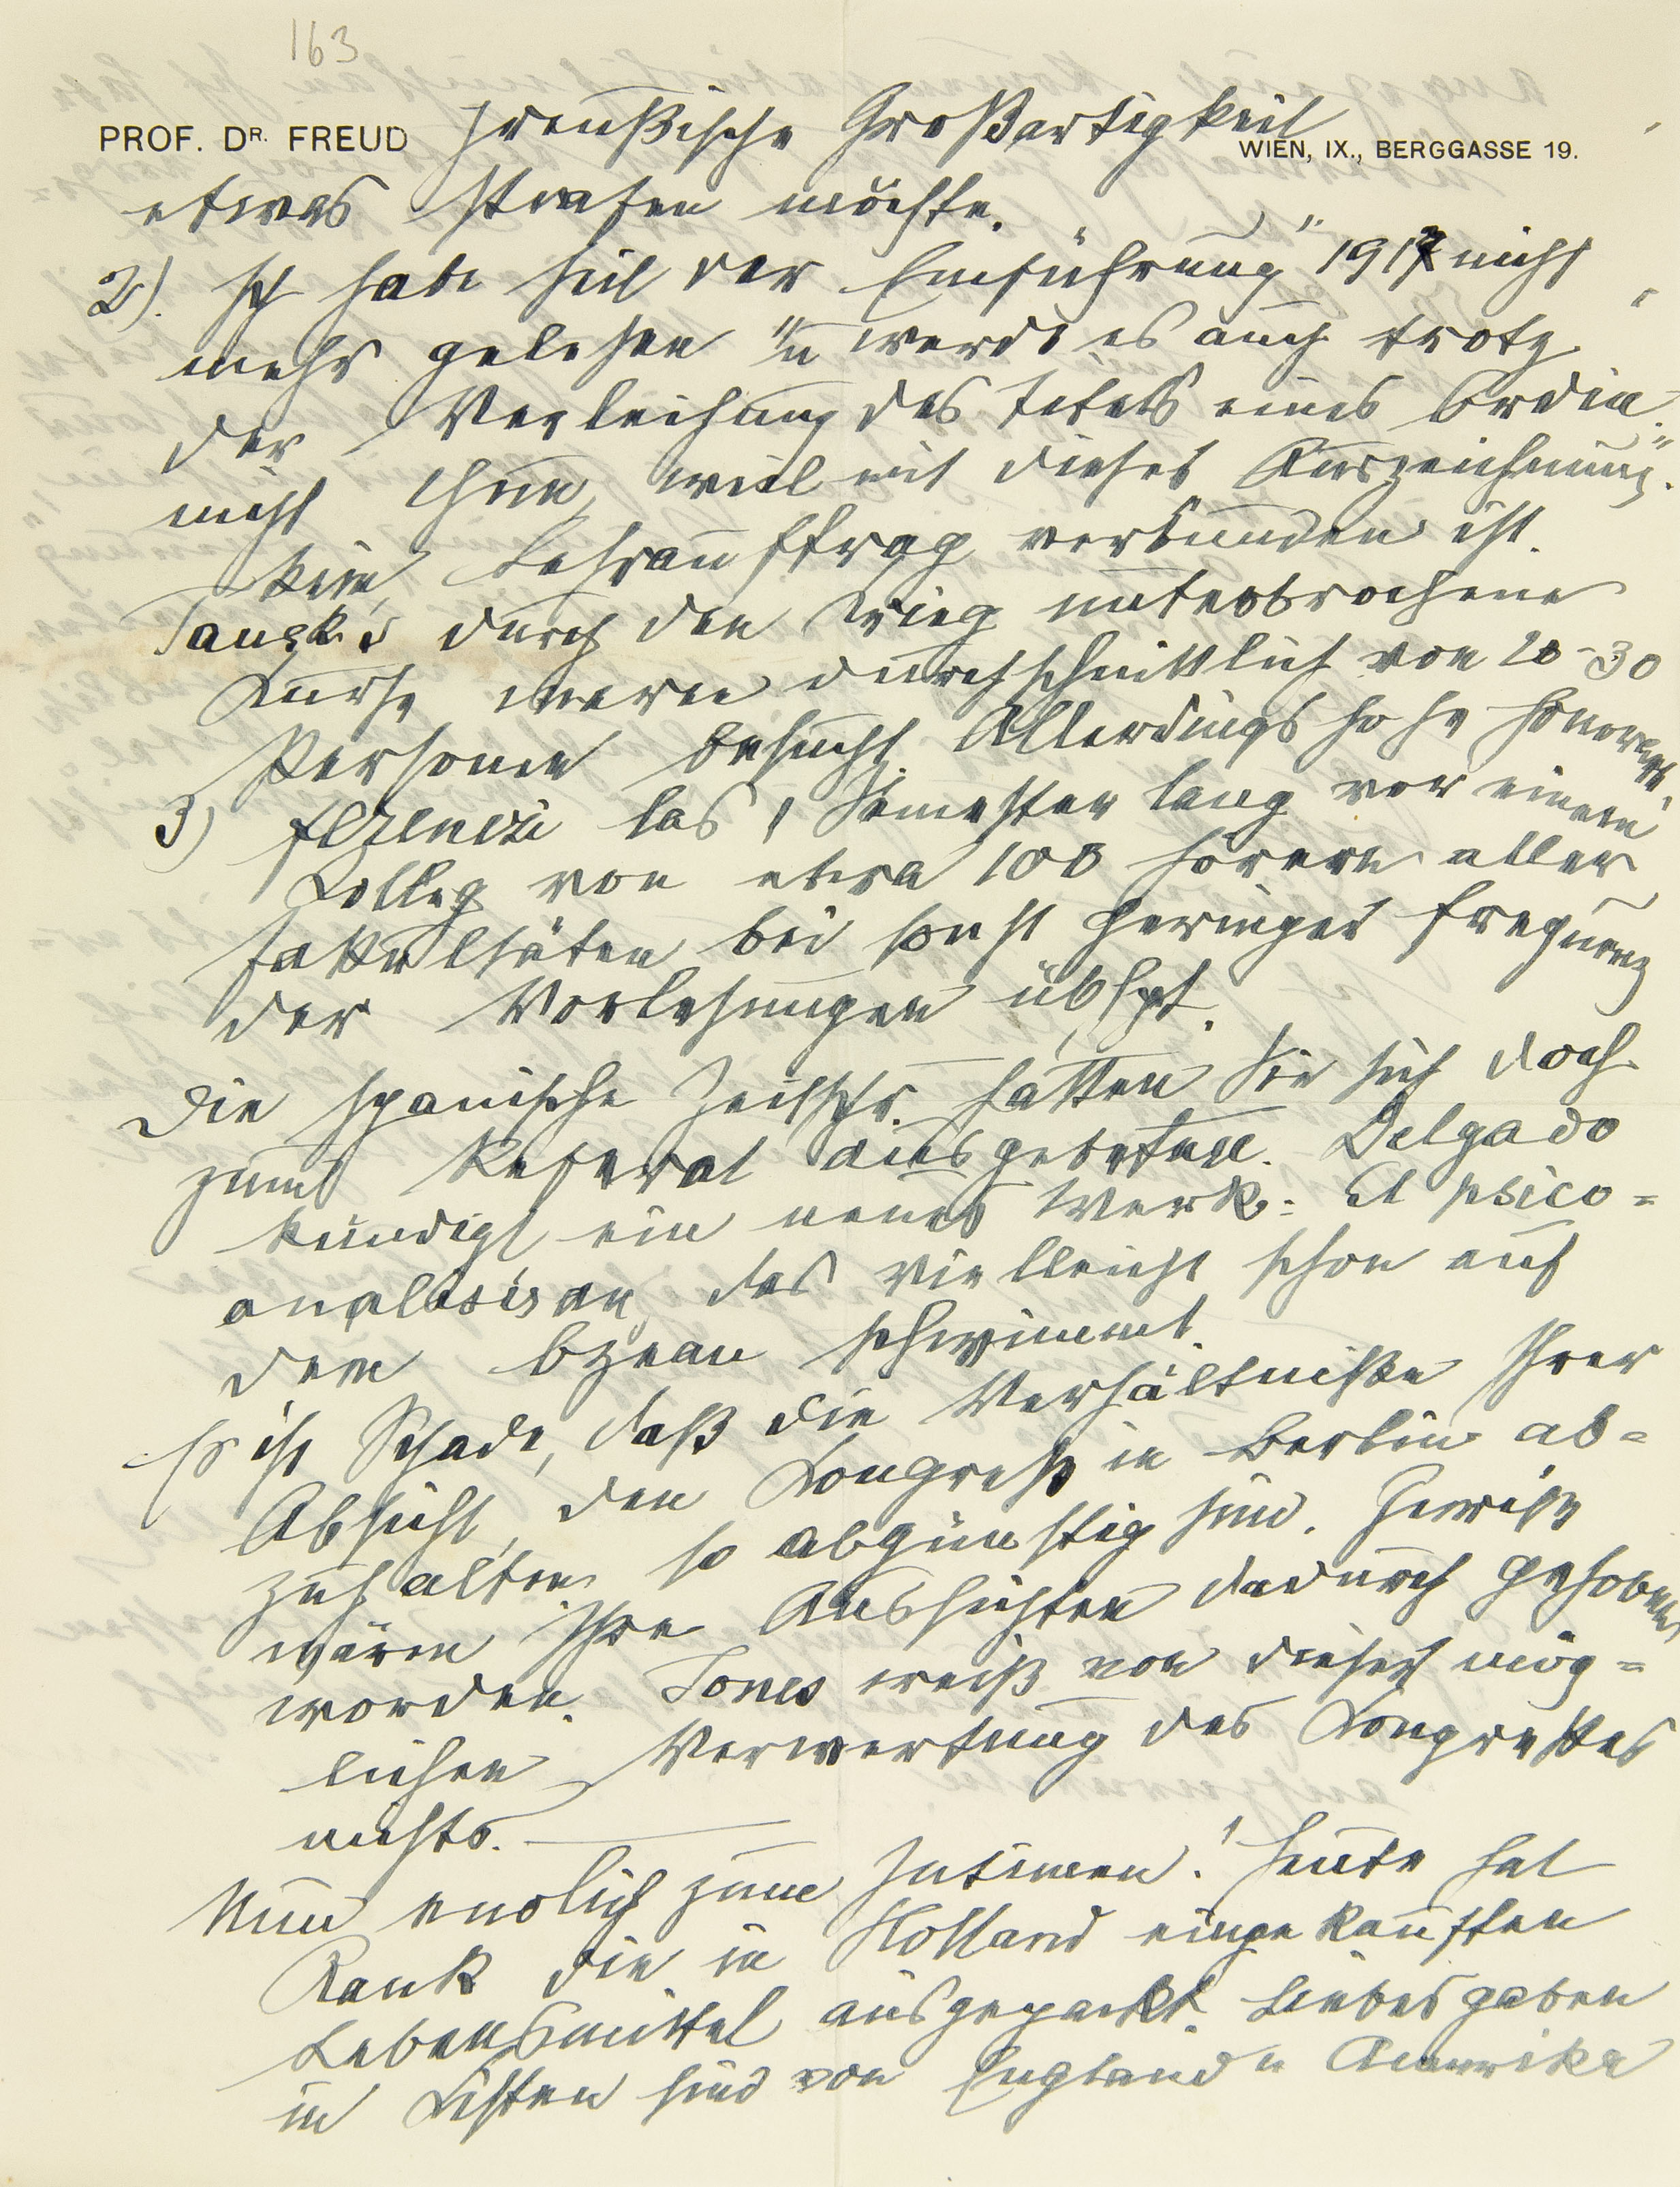 163
PROF. DR. FREUD
WIEN, IX., BERGGASSE 19.
preußische Großartigkeit
etwas strafen möchte.
2). Ich habe seit der „Einführung" 1917 nicht
mehr gelesen u werde es auch trotz
der Verleihung des Titels eines Ordin.
nicht thun, weil mit dieser „Auszeichnung"
kein Lehrauftrag verbunden ist.
Tausk's durch den Krieg unterbrochene
Kurse waren durchschnittlich von 20-30
Personen besucht. Allerdings hohe Honorare.
3) Ferenczi las 1 Semester lang vor einem
Colleg von etwa 100 Hörern aller
Fakultäten bei sonst geringer Frequenz
der Vorlesungen übhpt.
Die spanische Zeitschr. hätten Sie sich doch
zum Referat ausgebeten. Delgado
kündigt ein neues Werk: El psico=
analisis an, das vielleicht schon auf
dem Ozean schwimmt.
Es ist Schade, daß die Verhältniße Ihrer
Absicht, den Congreß in Berlin ab=
zuhalten so abgünstig sind. Gewiß
wären Ihre Aussichten dadurch gehoben
worden. Jones weiß von dieser mög=
lichen Verwertung des Congreßes
nichts. —
Nun endlich zum Intimen! Heute hat
Rank die in Holland eingekauften
Lebensmittel ausgepackt. Liebesgaben
in Kisten sind von England u Amerika